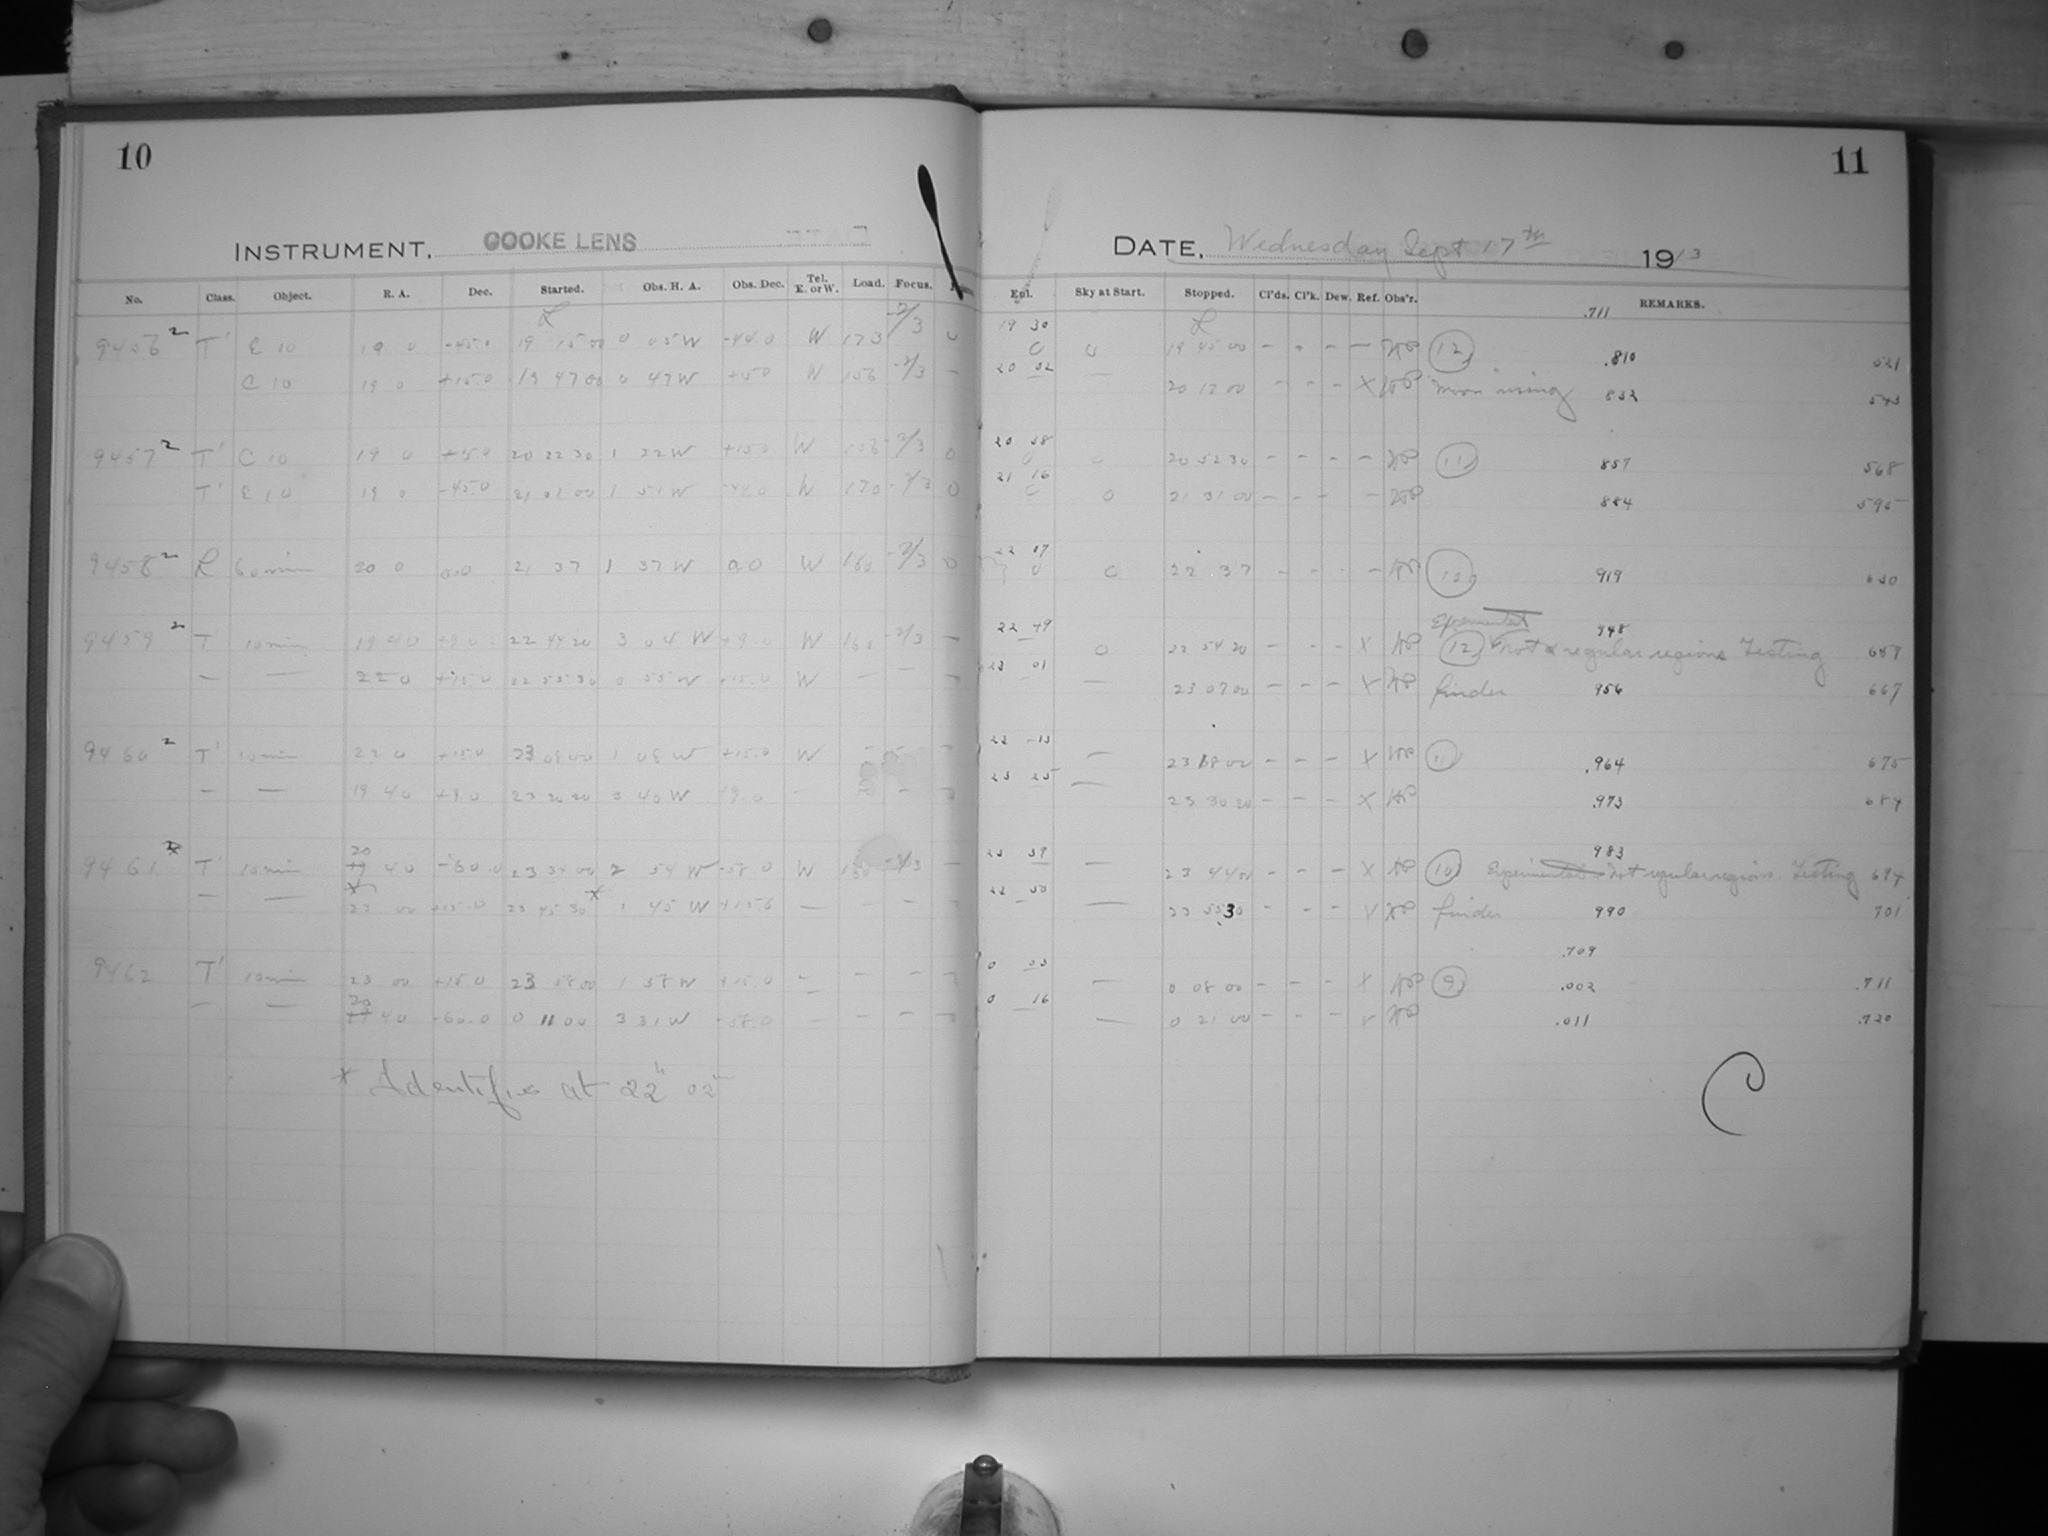 10
11
INSTRUMENT, COOKE LENS
DATE, Wednesday Sept 17th 1913
No. Class. Object. R. A. Dec. Started. Obs. H. A. Obs. Dec. Tel. E. or W. Load. Focus.
Sky at Start. Stopped. Cl'ds. Cl'k. Dew. Ref. Obs'r. REMARKS.
.711
9456 2 T' E 10 19 0 -45.0 19 15 00 0 05 W -44.0 W 173 -2/3 0 19 30 0 0 19 45 00 - - - - (12) .810 521
C 10 19 0 +15.0 19 47 00 0 47 W +15.0 W 156 -2/3 - 20 02 — 20 17 00 - - - X Moon rising 832 543
9457 2 T' C 10 19 0 +15.0 20 22 30 1 22 W +15.0 W 156 -2/3 0 20 38 0 0 20 52 30 - - - - (11) 857 568
T' E 10 19 0 -45.0 21 01 00 1 51 W -44.0 W 170 -2/3 0 21 16 0 0 21 31 00 - - - - 884 595
9458 2 R 60 min 20 0 0.0 21 37 1 37 W 0.0 W 160 -2/3 0 22 07 0 0 22 37 - - - - (10) 919 630
Experimental 948
9459 2 T 10 min 19 40 +9.0 22 44 20 3 04 W +9.0 W 160 -2/3 — 22 49 0 22 54 20 - - - X (12) Not regular regions Testing 659
— — 22 0 +15.0 22 55 30 0 55 W +15.0 W — — 23 01 — 23 07 00 - - - X finder 956 667
9460 2 T' 10 min 22 0 +15.0 23 08 00 1 08 W +15.0 W - - - 22 13 — 23 18 00 - - - X (11) .964 675
— — 19 40 +9.0 23 20 20 3 40 W +9.0 — 23 25 — 23 30 20 - - - X .973 684
20 983
9461 T' 10 min 19 40 -60.0 23 34 00 2 54 W -58.0 W 150 -2/3 — 23 39 — 23 44 00 - - - X (10) Experimental Not regular regions. Testing 694
— — 22 00 +15.0 23 45 30 * 1 45 W +15.0 — — — 22 50 — 23 55 30 - - - X finder 990 701
.709
9462 T' 10 min 23 00 +15.0 23 58 00 1 58 W +15.0 — - - 0 03 — 0 08 00 - - - X (9) .002 .711
20
— — 19 40 -60.0 0 11 00 3 31 W -58.0 — - - 0 16 — 0 21 00 - - - X .011 .720
* Identifies at 22h 02m
C